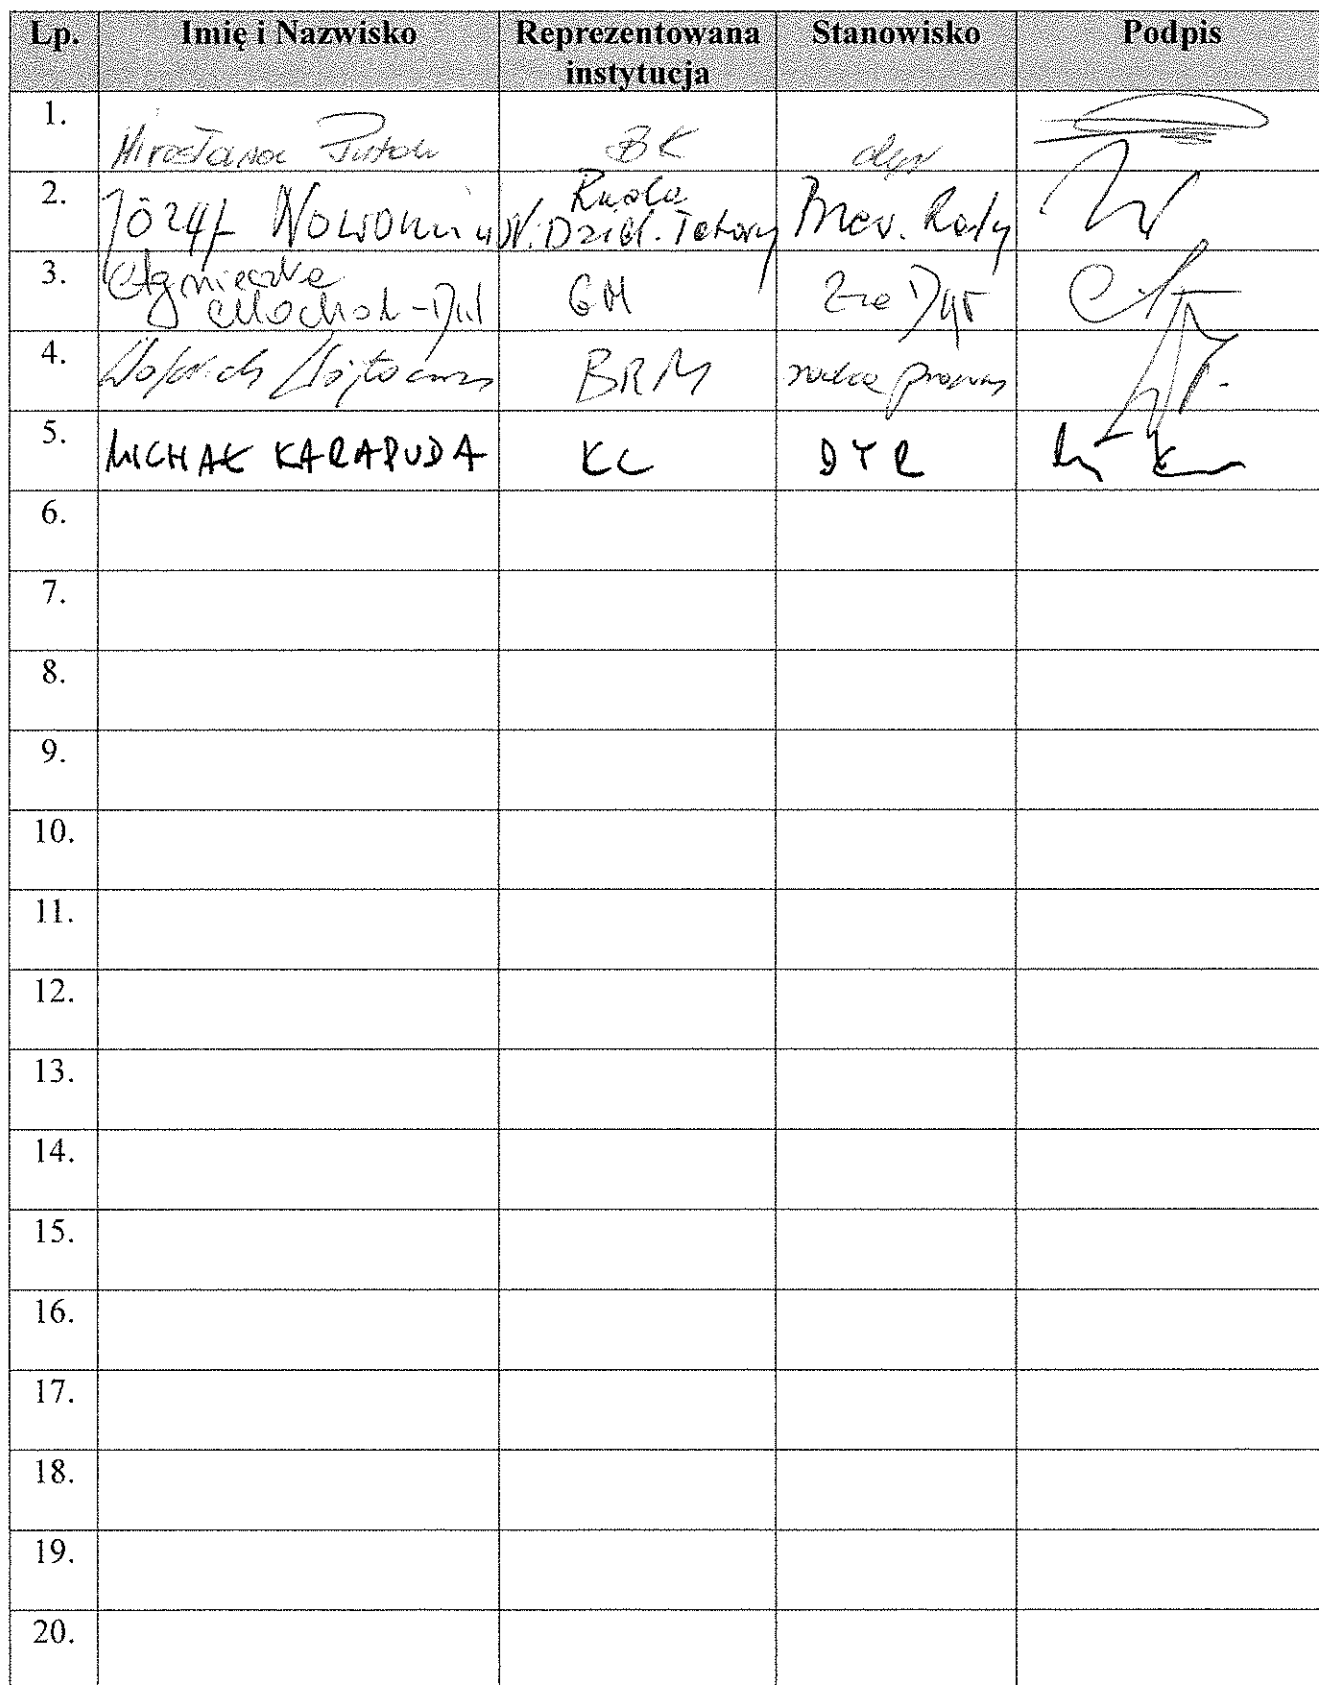 Lp. Imię i Nazwisko Reprezentowana instytucja Stanowisko Podpis
1. Mirosława BK dyr
2. Józef Rada Dziel. Tatary Rady
3. Agnieszka GM Z-ca Dyr
4. Wojciech BRM radca prawny
5. MICHAŁ KARAPUDA KL DYR
6.
7.
8.
9.
10.
11.
12.
13.
14.
15.
16.
17.
18.
19.
20.